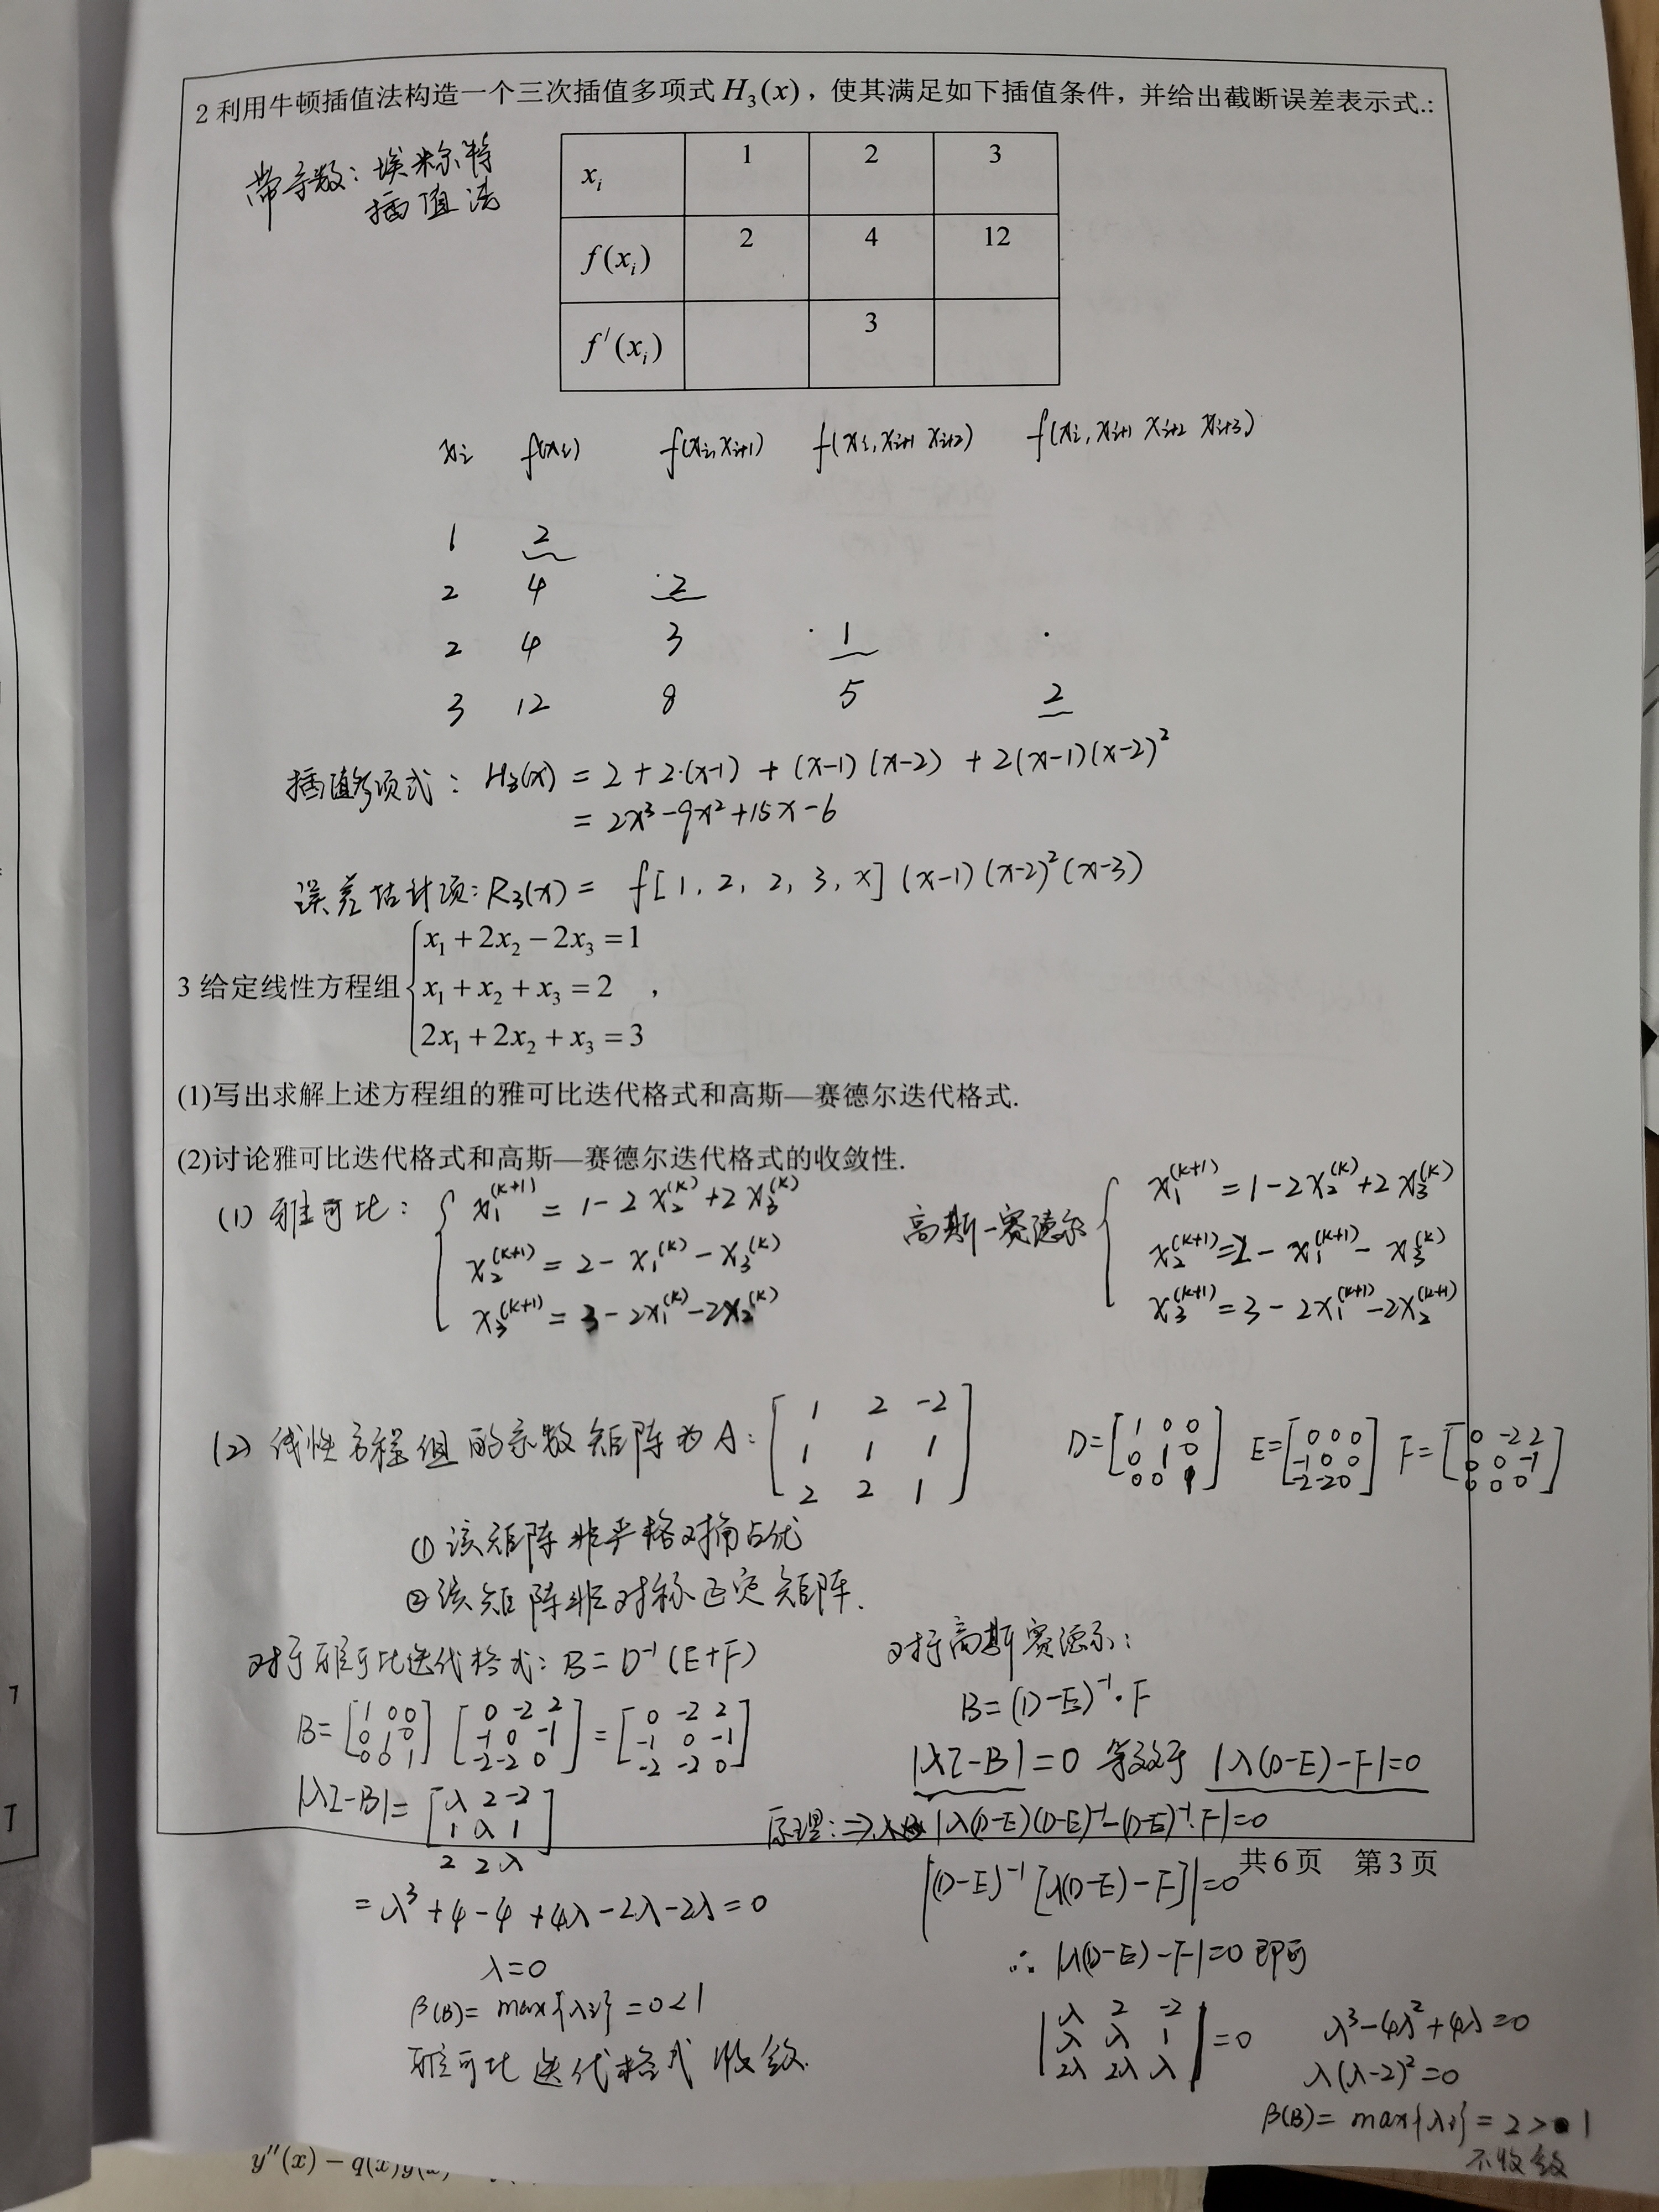 2 利用牛顿插值法构造一个三次插值多项式 H₃(x)，使其满足如下插值条件，并给出截断误差表示式.:
带导数：埃米尔特
插值法
xᵢ 1 2 3
f(xᵢ) 2 4 12
f′(xᵢ) 3
xᵢ f(xᵢ) f(xᵢ,xᵢ₊₁) f(xᵢ,xᵢ₊₁ xᵢ₊₂) f(xᵢ,xᵢ₊₁ xᵢ₊₂ xᵢ₊₃)
1 2
2 4 2
2 4 3 1
3 12 8 5 2
插值多项式：H₃(x) = 2+2·(x-1) + (x-1)(x-2) + 2(x-1)(x-2)²
= 2x³-9x²+15x-6
误差估计项：R₃(x) = f[1, 2, 2, 3, x](x-1)(x-2)²(x-3)
x₁+2x₂−2x₃=1
3 给定线性方程组 x₁+x₂+x₃=2 ，
2x₁+2x₂+x₃=3
(1)写出求解上述方程组的雅可比迭代格式和高斯—赛德尔迭代格式.
(2)讨论雅可比迭代格式和高斯—赛德尔迭代格式的收敛性.
(1) 雅可比：
x₁⁽ᵏ⁺¹⁾ = 1-2x₂⁽ᵏ⁾+2x₃⁽ᵏ⁾
x₂⁽ᵏ⁺¹⁾ = 2-x₁⁽ᵏ⁾-x₃⁽ᵏ⁾
x₃⁽ᵏ⁺¹⁾ = 3-2x₁⁽ᵏ⁾-2x₂⁽ᵏ⁾
高斯-赛德尔
x₁⁽ᵏ⁺¹⁾=1-2x₂⁽ᵏ⁾+2x₃⁽ᵏ⁾
x₂⁽ᵏ⁺¹⁾=2-x₁⁽ᵏ⁺¹⁾-x₃⁽ᵏ⁾
x₃⁽ᵏ⁺¹⁾=3-2x₁⁽ᵏ⁺¹⁾-2x₂⁽ᵏ⁺¹⁾
(2) 线性方程组的系数矩阵为A：
1 2 -2
1 1 1
2 2 1
D=
1 0 0
0 1 0
0 0 1
E=
0 0 0
-1 0 0
-2 -2 0
F=
0 -2 2
0 0 -1
0 0 0
① 该矩阵非严格对角占优
② 该矩阵非对称正定矩阵.
对于雅可比迭代格式：B=D⁻¹(E+F)
B=
1 0 0
0 1 0
0 0 1
0 -2 2
-1 0 -1
-2 -2 0
=
0 -2 2
-1 0 -1
-2 -2 0
|λI-B|=
λ 2 -2
1 λ 1
2 2 λ
= λ³+4-4+4λ-2λ-2λ=0
λ=0
ρ(B)= max{λᵢ} =0<1
雅可比迭代格式收敛.
对于高斯赛德尔：
B=(D-E)⁻¹·F
|λI-B|=0 等效于 |λ(D-E)-F|=0
原理：⇒ |λ(D-E)(D-E)⁻¹-(D-E)⁻¹·F|=0
|(D-E)⁻¹[λ(D-E)-F]|=0
∴ |λ(D-E)-F|=0 即可
λ 2 -2
λ λ 1
2λ 2λ λ
=0
λ³-4λ²+4λ=0
λ(λ-2)²=0
ρ(B)= max{λᵢ} = 2>1
不收敛
共 6 页 第 3 页
y″(x) − q(x)y(x)